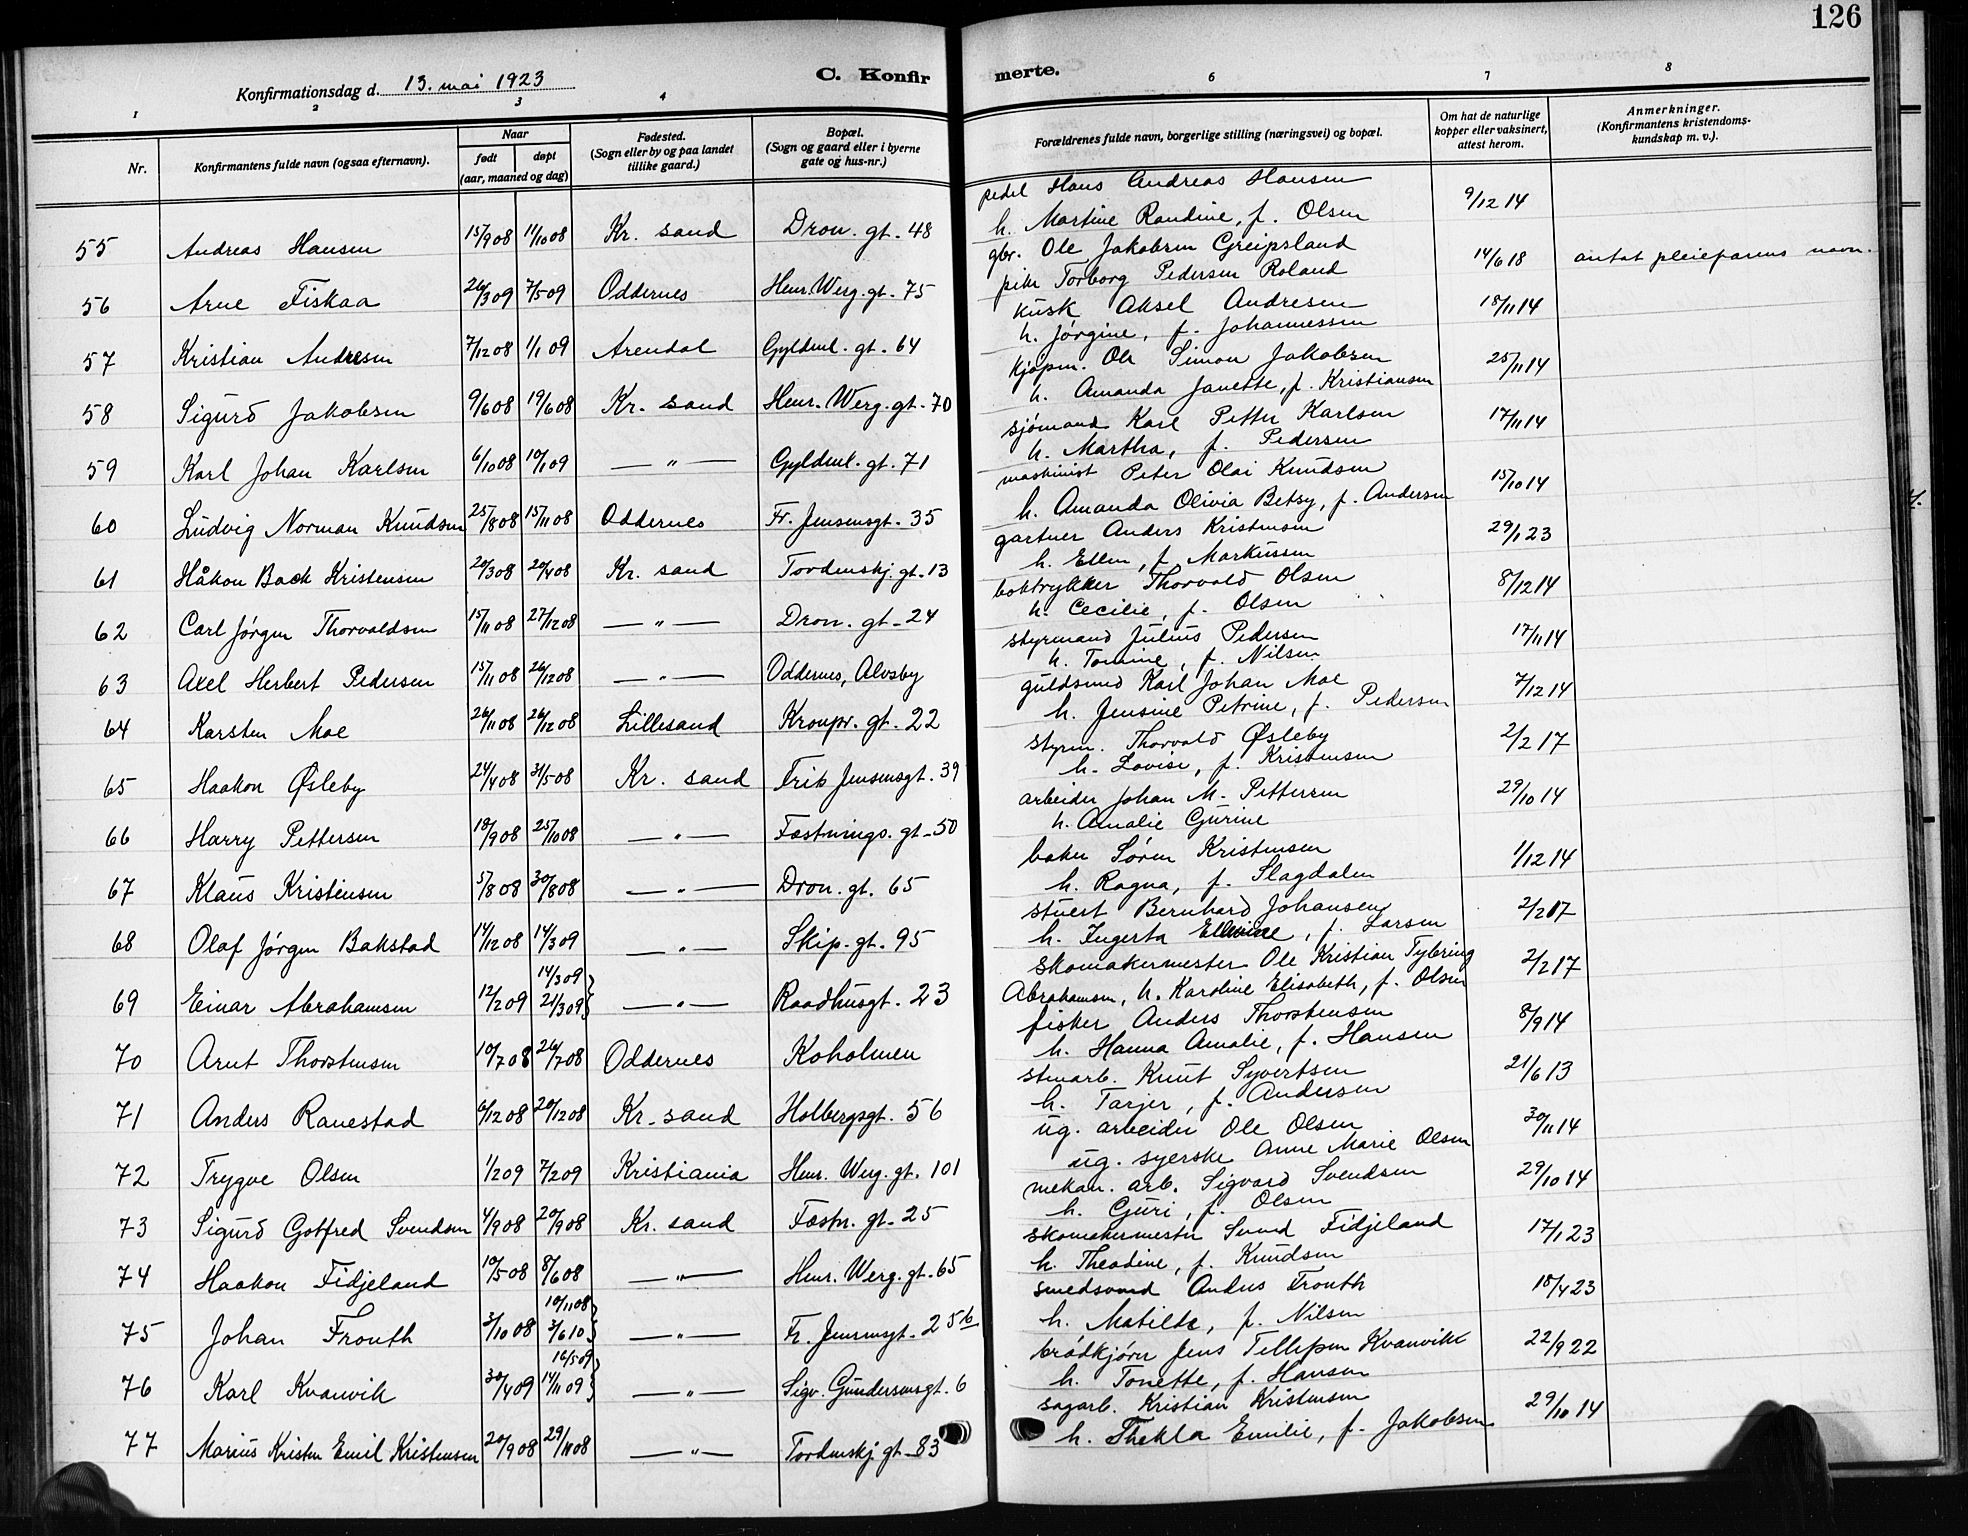 126
Konfirmationsdag d. 13. mai 1923
C. Konfirmerte.
1 2 3 4 6 7 8
Nr.
Konfirmantens fulde navn (ogsaa efternavn).
Naar
født
døpt
(aar, maaned og dag)
Fødested.
(Sogn eller by og paa landet
tillike gaard.)
Bopæl.
(Sogn og gaard eller i byerne
gate og hus-nr.)
Forældrenes fulde navn, borgerlige stilling (næringsvei) og bopæl.
Om hat de naturlige
kopper eller vaksinert,
attest herom.
Anmerkninger.
(Konfirmantens kristendoms-
kundskap m. v.).
55 Andreas Hansen 15/9 08 11/10 08 Kr. sand Dron. gt. 48 pedel Hans Andreas Hansen 9/12 14
h. Martine Randine, f. Olsen
56 Arne Fiskaa 26/3 09 7/5 09 Oddernes Henr. Werg. gt. 75 gbr. Ole Jakobsen Greipsland 14/6 18 antat pleieforens navn.
pike Torborg Pedersen Roland
57 Kristian Andresen 7/12 08 1/1 09 Arendal Gyldenl. gt. 64 kusk Aksel Andresen 18/11 14
h. Jørgine, f. Johannessen
58 Sigurd Jakobsen 9/6 08 19/6 08 Kr. sand Henr. Werg. gt. 70 kjøpm. Ole Simon Jakobsen 25/11 14
h. Amanda Janette, f. Kristiansen
59 Karl Johan Karlsen 6/10 08 10/1 09 — " — Gyldenl. gt. 71 sjømand Karl Petter Karlsen 17/11 14
h. Martha, f. Pedersen
60 Ludvig Norman Knudsen 25/8 08 15/11 08 Oddernes Fr. Jensensgt. 35 maskinist Peter Olai Knudsen 15/10 14
h. Amanda Olivia Betsy, f. Andersen
61 Håkon Back Kristensen 20/3 08 20/4 08 Kr. sand Tordenskj. gt. 13 gartner Anders Kristensen 29/1 23
h. Ellen, f. Markussen
62 Carl Jørgen Thorvaldsen 15/11 08 27/12 08 — " — Dron. gt. 24 boktrykker Thorvald Olsen 8/12 14
h. Cecilie, f. Olsen
63 Axel Herbert Pedersen 15/11 08 26/12 08 — " — Oddernes, Alvsby styrmand Julius Pedersen 17/11 14
h. Tomine, f. Nilsen
64 Karsten Moe 26/11 08 26/12 08 Lillesand Kronpr. gt. 22 guldsmed Karl Johan Moe 7/12 14
h. Jensine Petrine, f. Pedersen
65 Haakon Øsleby 24/4 08 31/5 08 Kr. sand Frits Jensensgt. 39 styrm. Thorvald Øsleby 2/2 17
h. Lovise, f. Kristensen
66 Harry Pettersen 18/9 08 25/10 08 — " — Fæstnings. gt. 50 arbeider Johan M. Pettersen 29/10 14
h. Amalie Gurine
67 Klaus Kristensen 5/8 08 30/8 08 — " — Dron. gt. 65 baker Søren Kristensen 1/12 14
h. Ragna, f. Slagdalen
68 Olaf Jørgen Bakstad 14/12 08 14/3 09 — " — Skip. gt. 95 stuert Bernhard Johansen 2/2 17
h. Ingerta Elluine, f. Larsen
69 Einar Abrahamsen 12/2 09 14/3 09 21/3 09} — " — Raadhusgt. 23 skomakermester Ole Kristian Tybring 2/2 17
Abrahamsen, h. Karoline Elisabeth, f. Olsen
70 Arnt Thorstensen 10/7 08 26/7 08 Oddernes Koholmen fisker Anders Thorstensen 8/9 14
h. Hanna Amalie, f. Hansen
71 Anders Ranestad 6/12 08 20/12 08 Kr. sand Holbergsgt. 56 stenarb. Knut Syvertsen 21/6 13
h. Tarjer, f. Andersen
72 Trygve Olsen 1/2 09 7/2 09 Kristiania Henr. Werg. gt. 101 ug. arbeider Ole Olsen 30/11 14
ug. syerske Anne Marie Olsen
73 Sigurd Gotfred Svendsen 4/9 08 20/9 08 Kr. sand Fæstn. gt. 25 mekan. arb. Sigvard Svendsen 29/10 14
h. Guri, f. Olsen
74 Haakon Fidjeland 10/5 08 8/6 08 — " — Henr. Werg. gt. 65 skomakermester Svend Fidjeland 17/1 23
h. Theodine, f. Knudsen
75 Johan Frouth 3/10 08 10/11 08 3/6 10} — " — Fr. Jensensgt. 25 b smedsvend Anders Frouth 18/4 23
h. Matilde, f. Nilsen
76 Karl Kvanvik 30/4 09 16/5 09 14/11 09} — " — Sigv. Gundersensgt. 6 brødkjører Jens Tellefsen Kvanvik 22/9 22
h. Tonette, f. Hansen
77 Marius Kristen Emil Kristensen 20/9 08 29/11 08 — " — Tordenskj. gt. 83 sagarb. Kristian Kristensen 29/10 14
h. Thekla Emilie, f. Jakobsen